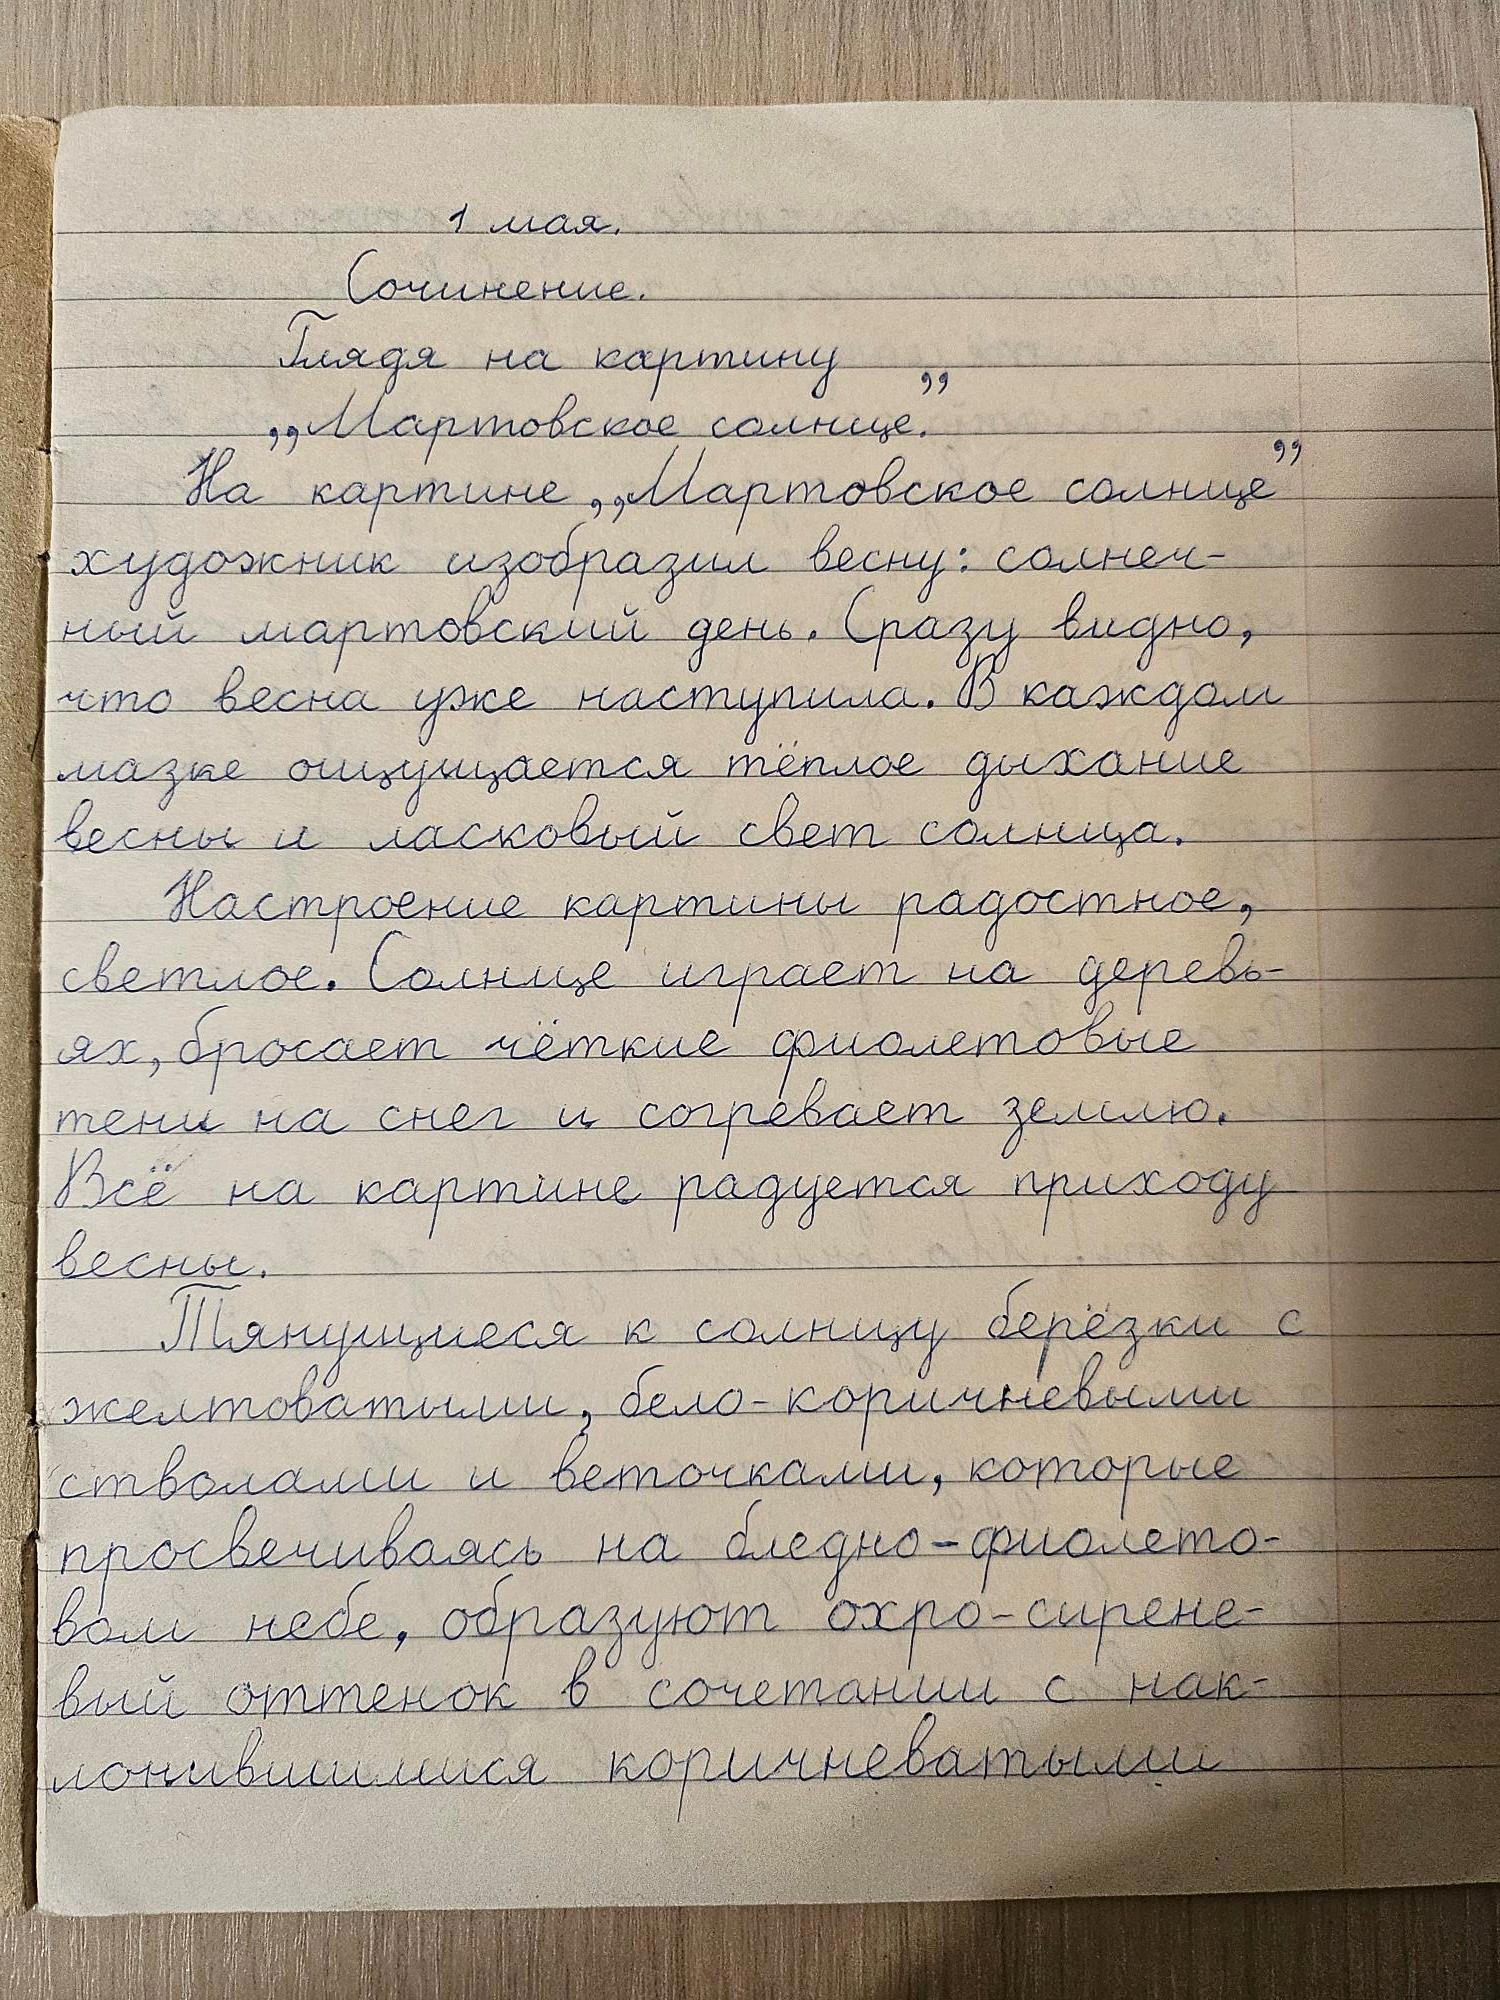 1 мая.
Сочинение.
Глядя на картину
„Мартовское солнце.”
На картине „Мартовское солнце”
художник изобразил весну: солнеч-
ный мартовский день. Сразу видно,
что весна уже наступила. В каждом
мазке ощущается тёплое дыхание
весны и ласковый свет солнца.
Настроение картины радостное,
светлое. Солнце играет на деревь-
ях, бросает чёткие фиолетовые
тени на снег и согревает землю.
Всё на картине радуется приходу
весны.
Тянущиеся к солнцу берёзки с
желтоватыми, бело-коричневыми
стволами и веточками, которые
просвечиваясь на бледно-фиолето-
вом небе, образуют охро-сирене-
вый оттенок в сочетании с нак-
лонившимися коричневатыми